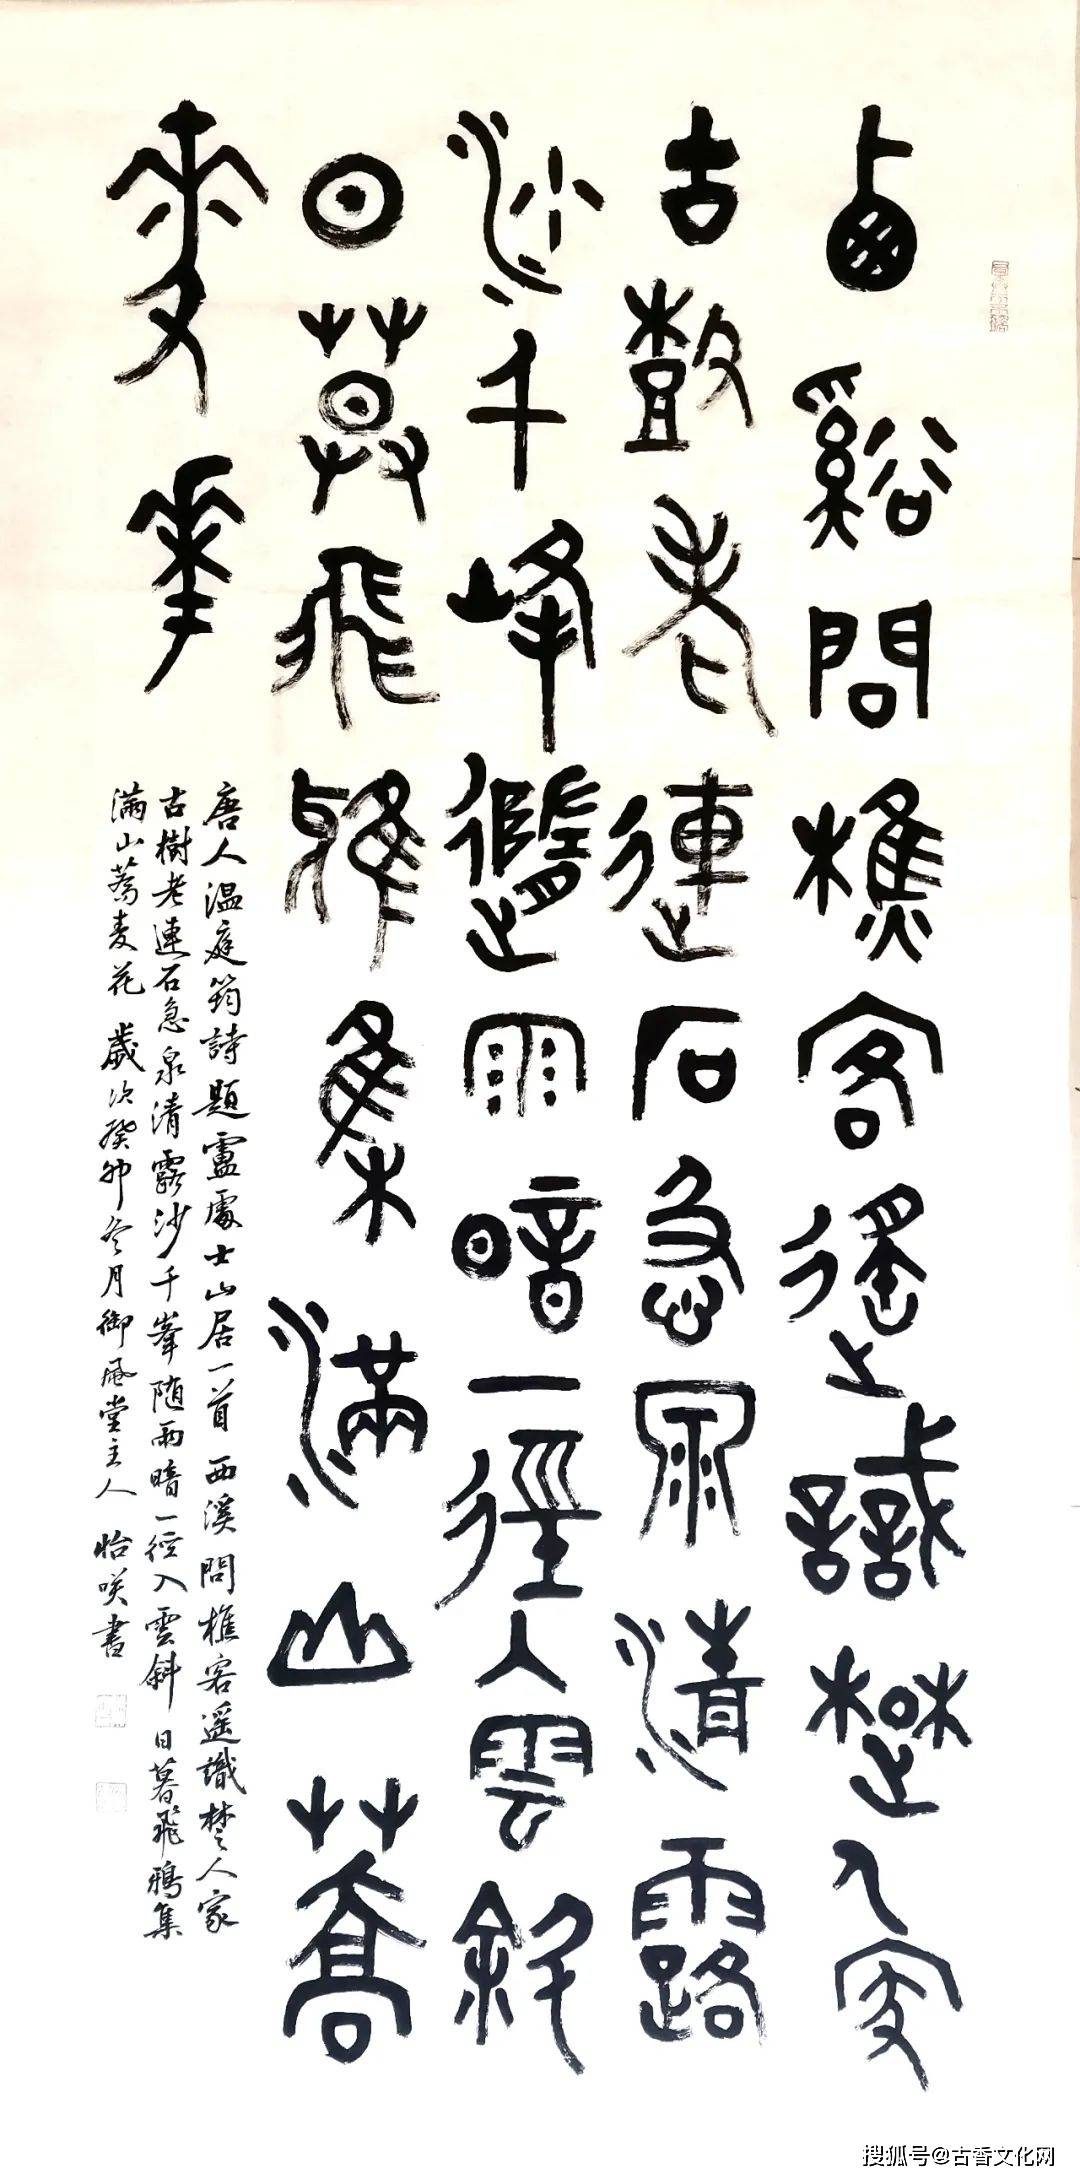 西谿問樵客遥識楚人家
古樹老連石急泉清露
沙千峰隨雨暗一徑入雲斜
日暮飛鴉集滿山蕎
麥花
唐人温庭筠詩題盧處士山居一首 西溪問樵客遥識楚人家
古樹老連石急泉清露沙千峯随雨暗一徑入雲斜 日暮飛鴉集
滿山蕎麦花 歲次癸卯冬月御風堂主人 怡咲書
搜狐号@古香文化网